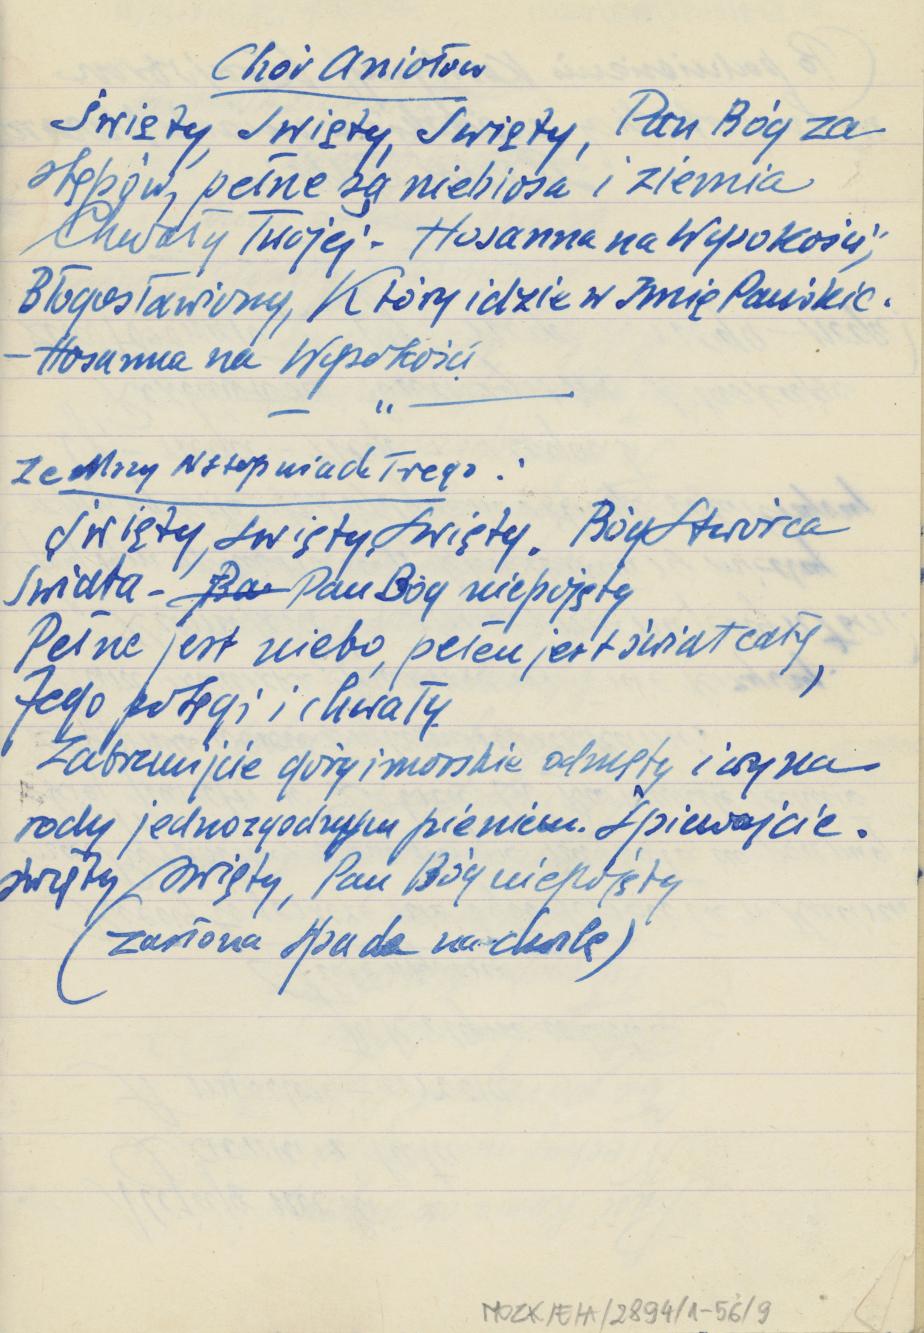 Chór Aniołów
Święty, Święty, Święty, Pan Bóg za
stępów, pełne są niebiosa i ziemia
Chwały Twojej - Hosanna na Wysokości,
Błogosławiony, Który idzie w Imię Pańskie.
- Hosanna na Wysokości
— " —
Ze Mszy
Święty, Święty, Święty. Bóg Stwórca
świata - Ba Pan Bóg niepojęty
Pełne jest niebo, pełen jest świat cały,
Jego potęgi i chwały
Zabrzmijcie góry i morskie odmęty i wy na
rody jednozgodnym pieniem. Śpiewajcie.
święty święty, Pan Bóg niepojęty
(zasłona spada na chwilę)
MOZK/EH/2894/1-56/9